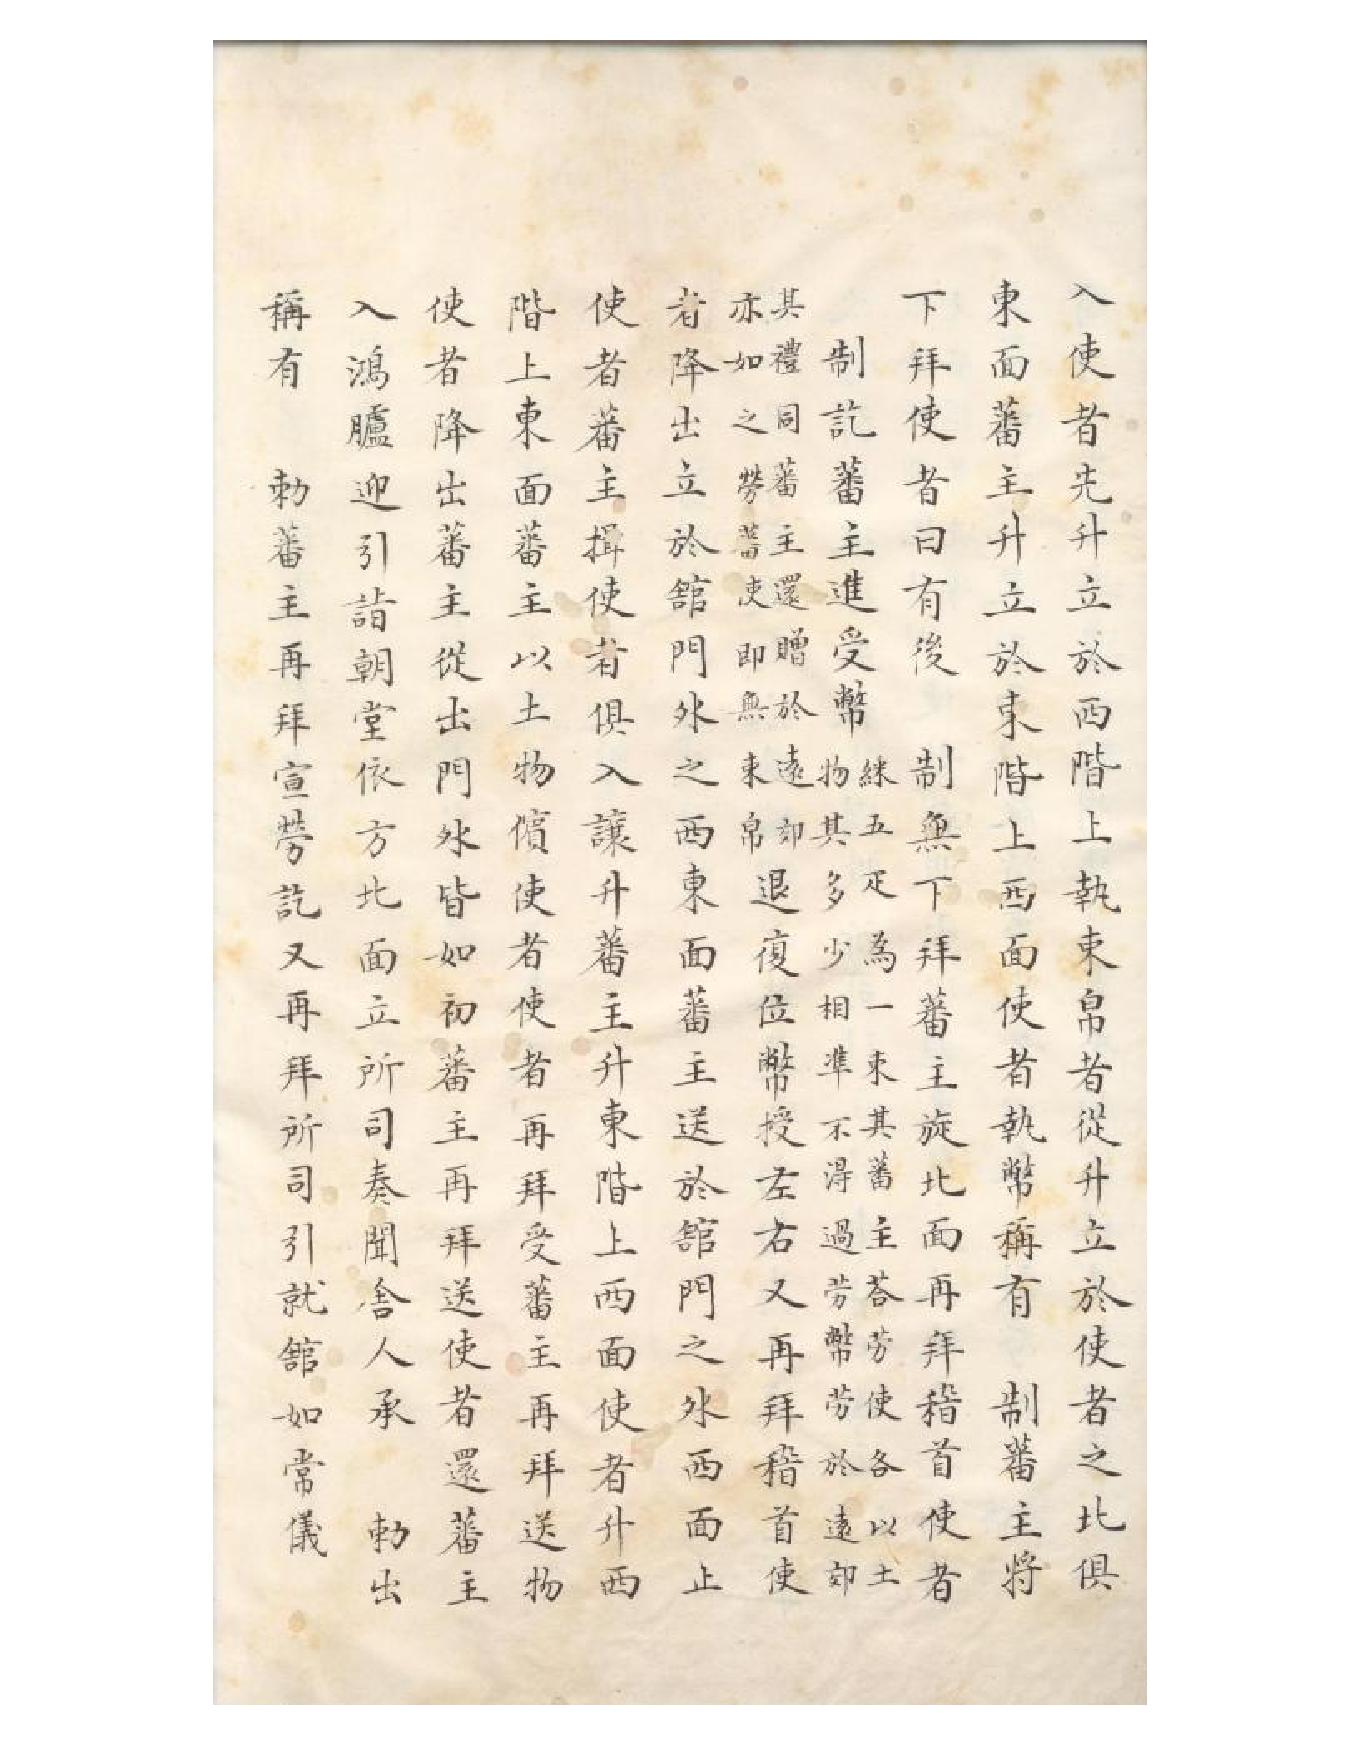 入使者先升立於西階上執束帛者從升立於使者之北俱
東面蕃主升立於東階上西面使者執幣稱有　制蕃主將
下拜使者曰有後　制無下拜蕃主旋北面再拜稽首使者
制訖蕃主進受幣
綵五疋為一束其蕃主荅劳使各以土
物其多少相準不得過劳幣劳於遠郊
其禮同蕃主還贈於遠郊
亦如之勞蕃使即無束帛
退復位幣授左右又再拜稽首使
者降出立於舘門外之西東面蕃主送於舘門之外西面止
使者蕃主揖使者俱入讓升蕃主升東階上西面使者升西
階上東面蕃主以土物儐使者使者再拜受蕃主再拜送物
使者降出蕃主從出門外皆如初蕃主再拜送使者還蕃主
入鴻臚迎引詣朝堂依方北面立所司奏聞舍人承　勑出
稱有　勑蕃主再拜宣勞訖又再拜所司引就舘如常儀